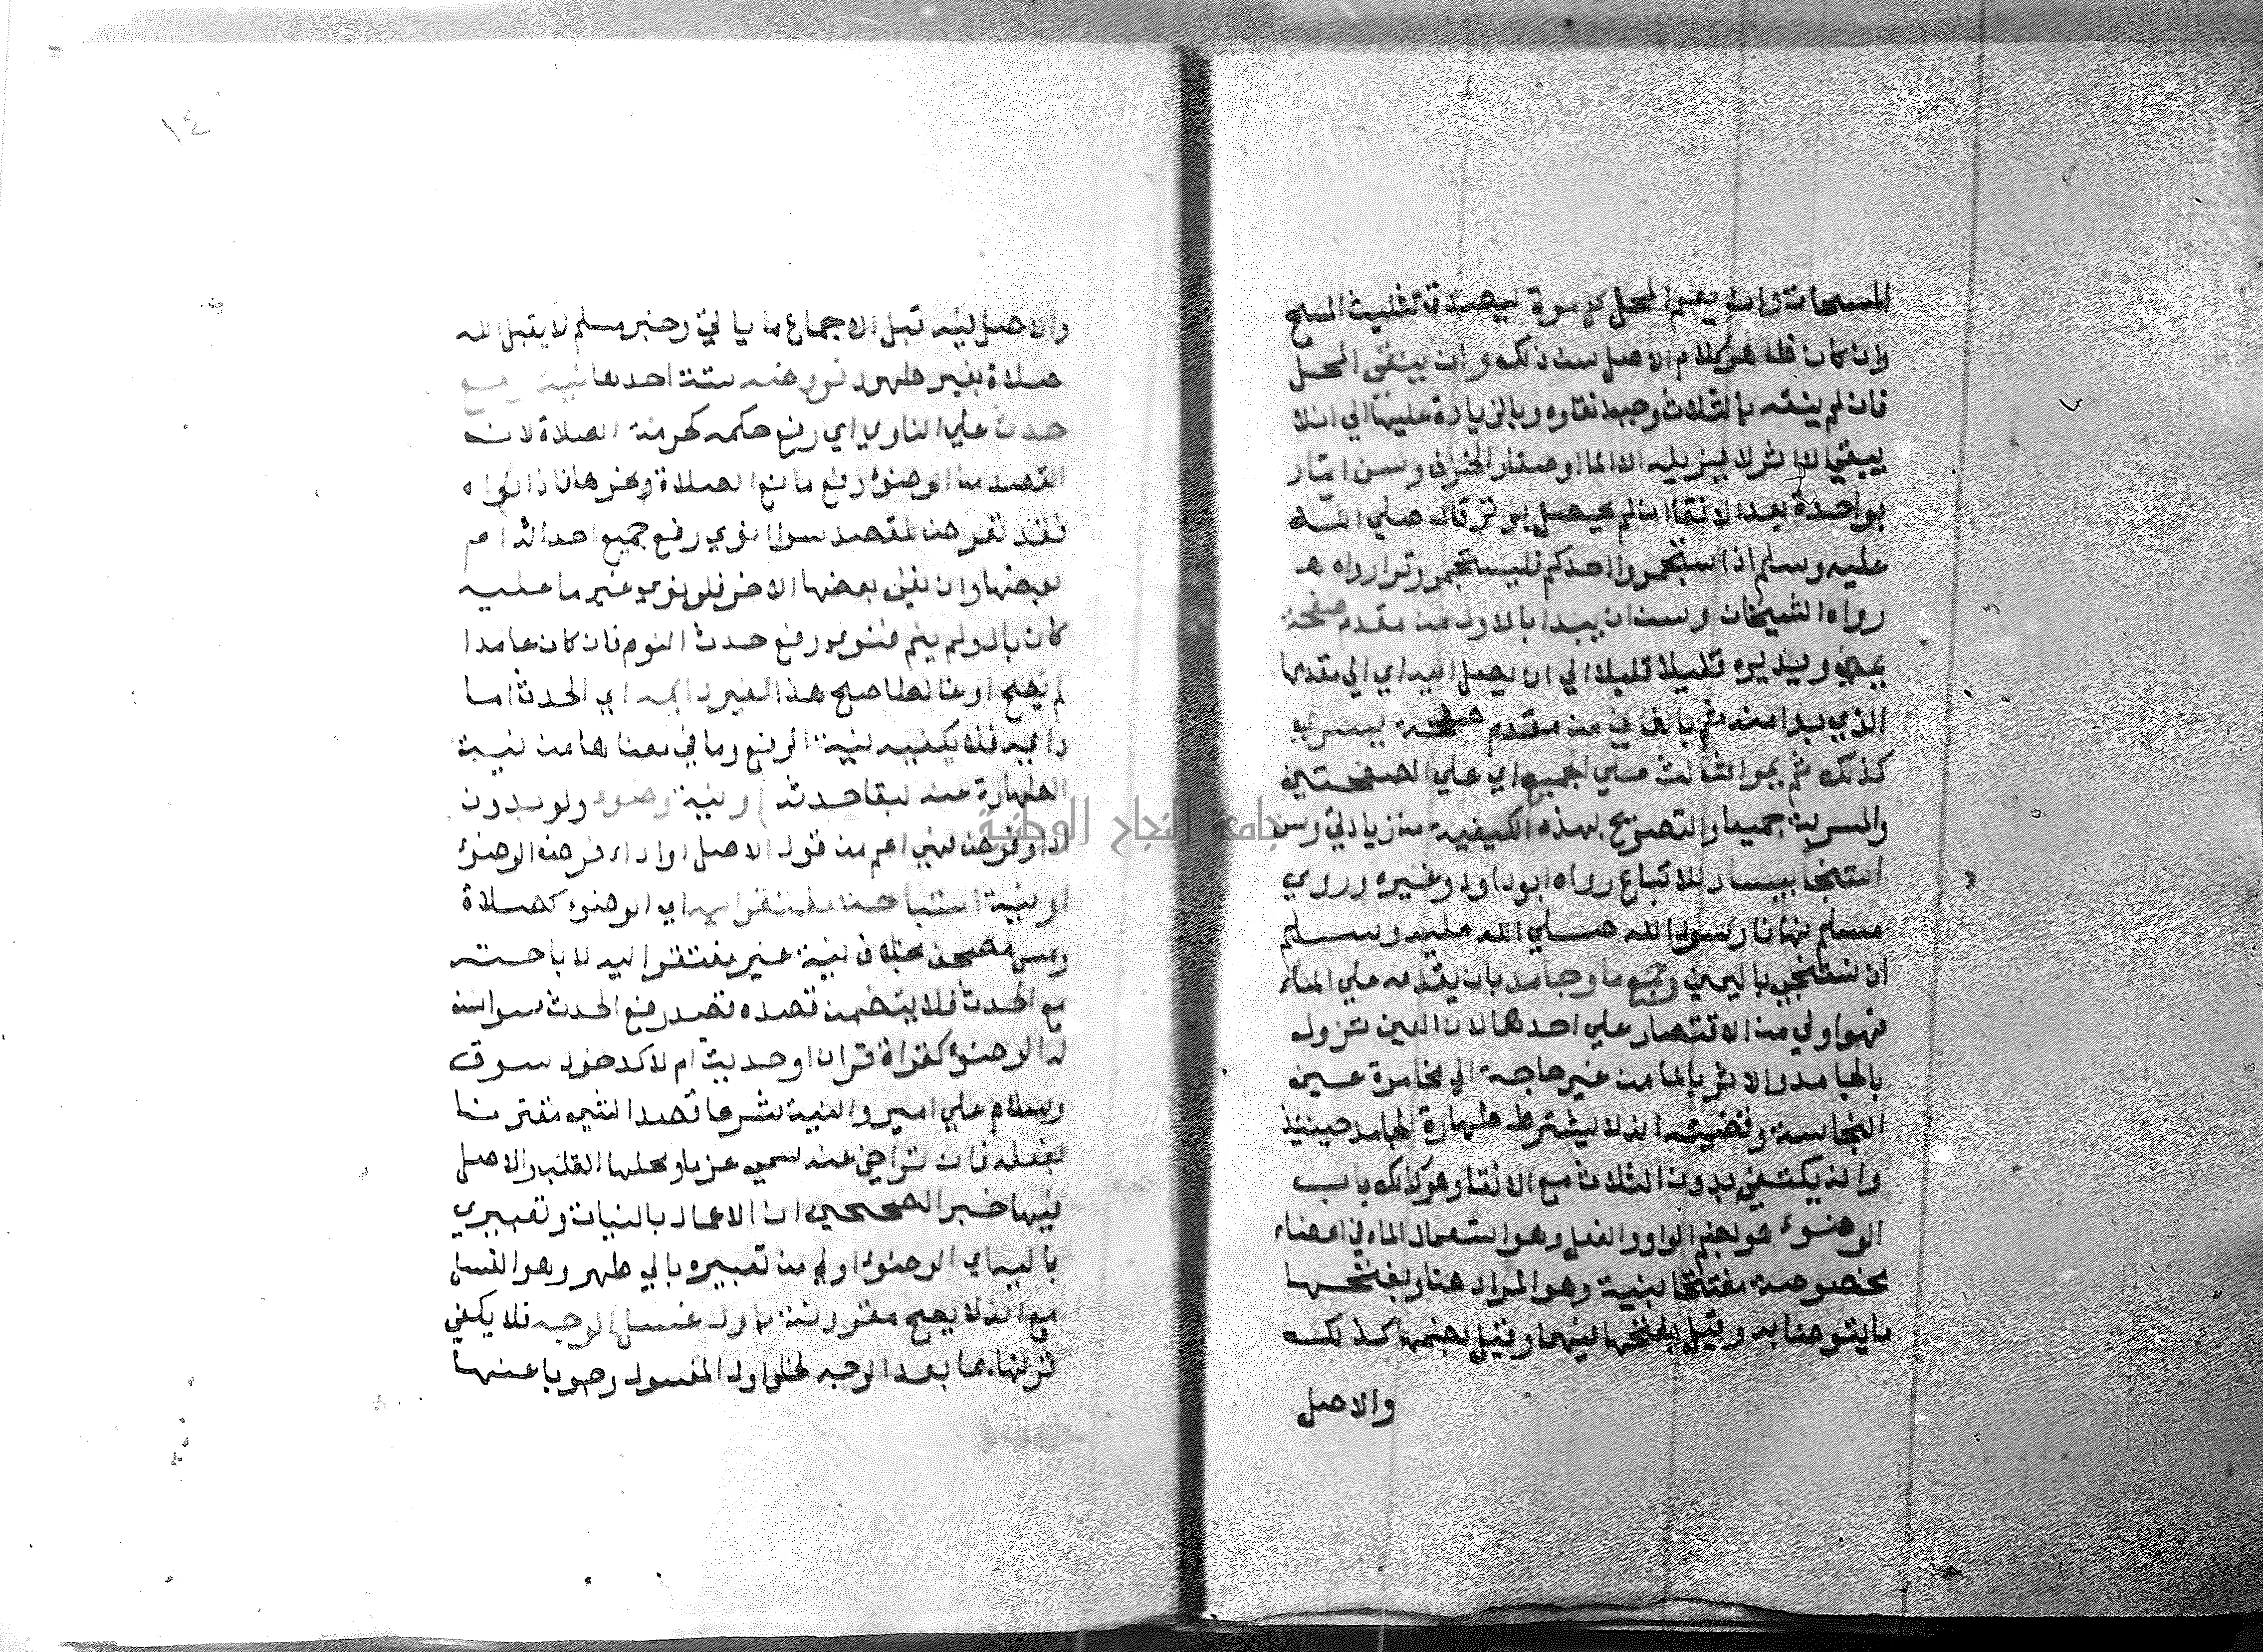 المسحات وان يعم المحل كل مرة ليصدق تثليث المسح
وان كان ظاهر كلام الاصل سن ذلك وان ينقى المحل
فان لم ينقه بالثلاث وجب انقاوه وبالزيادة عليها الي ان لا
يبقي الا اثر لا يزيله الا الما او صغار الخزف وسن ايتار
بواحدة بعد الانقا ان لم يحصل بوتر قال صلي الله
عليه وسلم اذا استجمر احدكم فليستجمر وترا رواه
رواه الشيخان وسن ان يبدا بالاول من مقدم صفحة
يمني ويديره قليلا قليلا الي ان يصل اليه اي الي مقدمها
الذي بدا منه ثم بالثاني من مقدم صفحة يسري
كذلك ثم يمر الثالث علي الجميع اي علي الصفحتين
والمسربة جميعا والتصريح بهذه الكيفية من زيادتي وسن
استنجا بيسار للاتباع رواه ابو داود وغيره وروي
مسلم نهانا رسول الله صلي الله عليه وسلم
ان نستنجي باليمين وجمع ما وجامد بان يقدمه علي الماء
فهو اولي من الاقتصار علي احدهما لان العين تزول
بالجامد والاثر بالما من غير حاجة الي مخامرة عين
النجاسة وقضيته انه لا يشترط طهارة الجامد حينئذ
وانه يكتفي بدون الثلاث مع الانقا وهو كذلك باب
الوضوء هو بضم الواو الفعل وهو استعمال الماء في اعضاء
مخصوصة مفتتحا بنية وهو المراد هنا وبفتحها
ما يتوضا به وقيل بفتحها فيهما وقيل بضمها كذلك
والاصل
١٤
والاصل فيه قبل الاجماع ما ياتي وخبر مسلم لا يقبل الله
صلاة بغير طهور فروضه ستة احدها نية رفع
حدث علي الناوي اي رفع حكمه كحرمة الصلاة لان
القصد من الوضوء رفع مانع الصلاة ونحوها فاذا نواه
فقد تعرض للمقصد سوا نوي رفع جميع احداثه ام
بعضها وان نفي بعضها الاخر فلو نوي غير ما عليه
كان بال ولم ينم فنوي رفع حدث النوم فان كان عامدا
لم يصح او غالطا صح هذا لغير دايمه اي الحدث اما
دايمه فلا يكفيه نية الرفع وما في معناها من نية
الطهارة عنه لبقا حدثه او نية وضوء ولو بدون
ادا وفرض فهي اعم من قول الاصل او اداء فرض الوضوء
او نية استباحة مفتقر اليه اي الوضوء كصلاة
ومس مصحف بخلاف نية غير مفتقر اليه لاباحته
مع الحدث فلا يتضمن قصده قصد رفع الحدث سوا سن
له الوضوء كقراة قران او حديث ام لا كدخول سوق
وسلام علي امير والنية شرعا قصد الشي مقترنا
بفعله فان تراخي عنه سمي عزما ومحلها القلب والاصل
فيها خبر الصحيحين ان الاعمال بالنيات وتعبيري
باليه اي الوضوء اولي من تعبيره بالي طهر وهو الغسل
مع انه لا يصح مقرونة باول غسل الوجه فلا يكفي
قرنها بما بعد الوجه لخلو اول المغسول وجوبا عنها